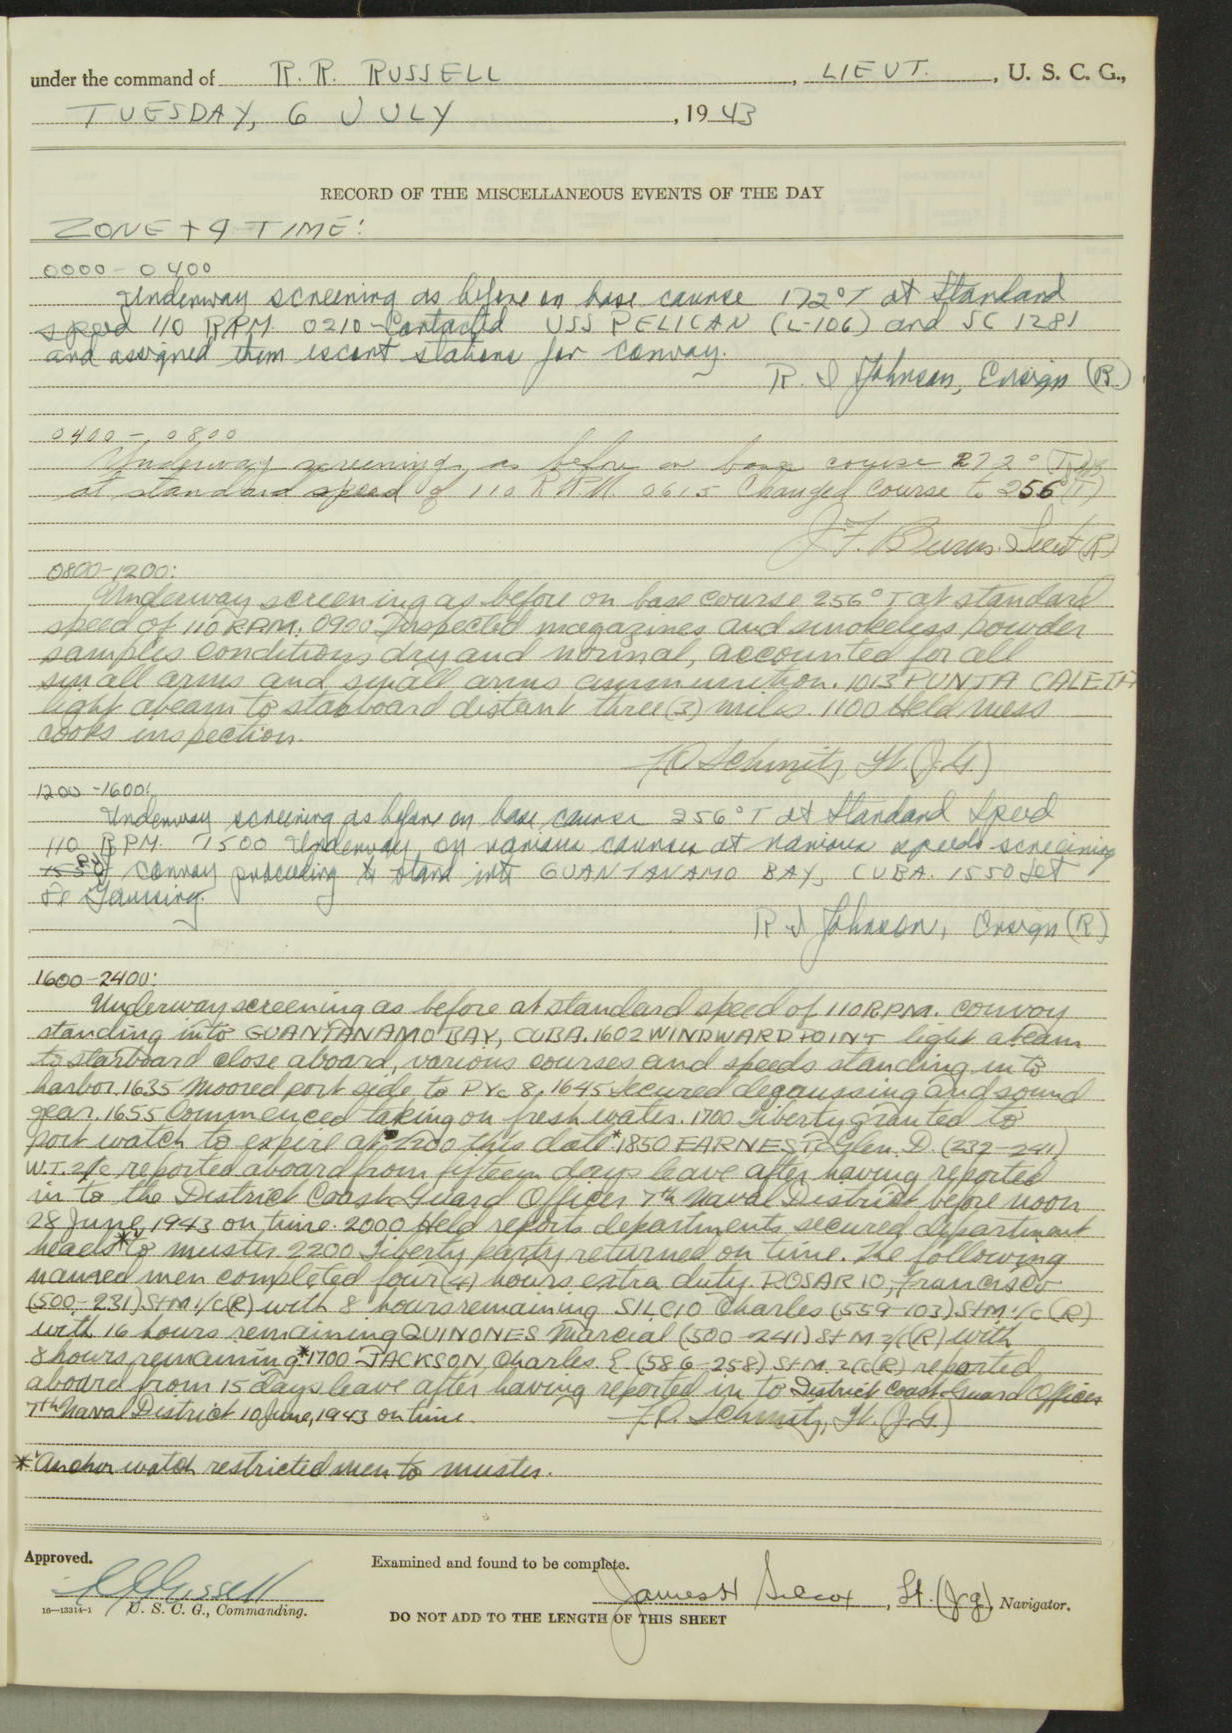 under the command of R. R. RUSSELL, LIEUT., U. S. C. G.,
TUESDAY, 6 JULY, 1943
RECORD OF THE MISCELLANEOUS EVENTS OF THE DAY
ZONE + 4 TIME:
0000 - 0400
Underway screening as before on base course 172°T at Standard
speed 110 RPM. 0210 - Contacted USS PELICAN (L-106) and SC 1281
and assigned them escort stations for convoy.
R. I Johnson, Ensign (R.)
0400 - 0800
Underway screening as before on base course 272° (T)
at standard speed of 110 R.P.M. 0615 Changed course to 256 (T)
J. F. Burns. Lieut (R)
0800-1200:
Underway screening as before on base course 256° T at standard
speed of 110 R.P.M. 0900 Inspected magazines and smokeless powder
samples conditions dry and normal, accounted for all
small arms and small arms ammunition. 1013 PUNTA CALETA
light abeam to starboard distant three (3) miles. 1100 Held mess
cooks inspection.
Schmitz, Lt. (J.G.)
1200 -1600:
Underway screening as before on base course 256°T at Standard Speed
110 RPM. 1500 Underway on various courses at various speeds screening
convoy proceeding to stand into GUANTANAMO BAY, CUBA. 1550 Set
De Gaussing.
R I Johnson, Ensign (R)
1600-2400:
Underway screening as before at standard speed of 110 R.P.M. convoy
standing into GUANTANAMO BAY, CUBA. 1602 WINDWARD POINT light abeam
to starboard close aboard, various courses and speeds standing into
harbor. 1635 Moored port side to PYc 8, 1645 Secured degaussing and sound
gear, 1655 Commenced taking on fresh water. 1700 Liberty granted to
port watch to expire at 2200 this date * 1850 EARNEST, Glen. D. (232-241)
W.T. 2/c reported aboard from fifteen days leave after having reported
in to the District Coast Guard Officer 7th Naval District before noon
28 June, 1943 on time. 2000 Held reports departments secured, department
heads * to muster 2200 Liberty party returned on time. The following
named men completed four (4) hours extra duty. ROSARIO, Francisco
(500-231) StM 1/c (R) with 8 hours remaining SILCIO Charles (559-103) StM 1/c (R)
with 16 hours remaining QUINONES Marcial (500-241) StM 2/c (R) with
8 hours remaining * 1700 JACKSON, Charles. E. (586-258) StM 2/c (R) reported
aboard from 15 days leave after having reported in to District Coast Guard Officer
7th Naval District 10 June, 1943 on time. Schmitz, Lt. (J.G.)
* Anchor watch restricted men to muster.
Approved. Examined and found to be complete.
R R Russell James H Silcox, Lt. (Jg), Navigator.
16—13314-1 U. S. C. G., Commanding.
DO NOT ADD TO THE LENGTH OF THIS SHEET